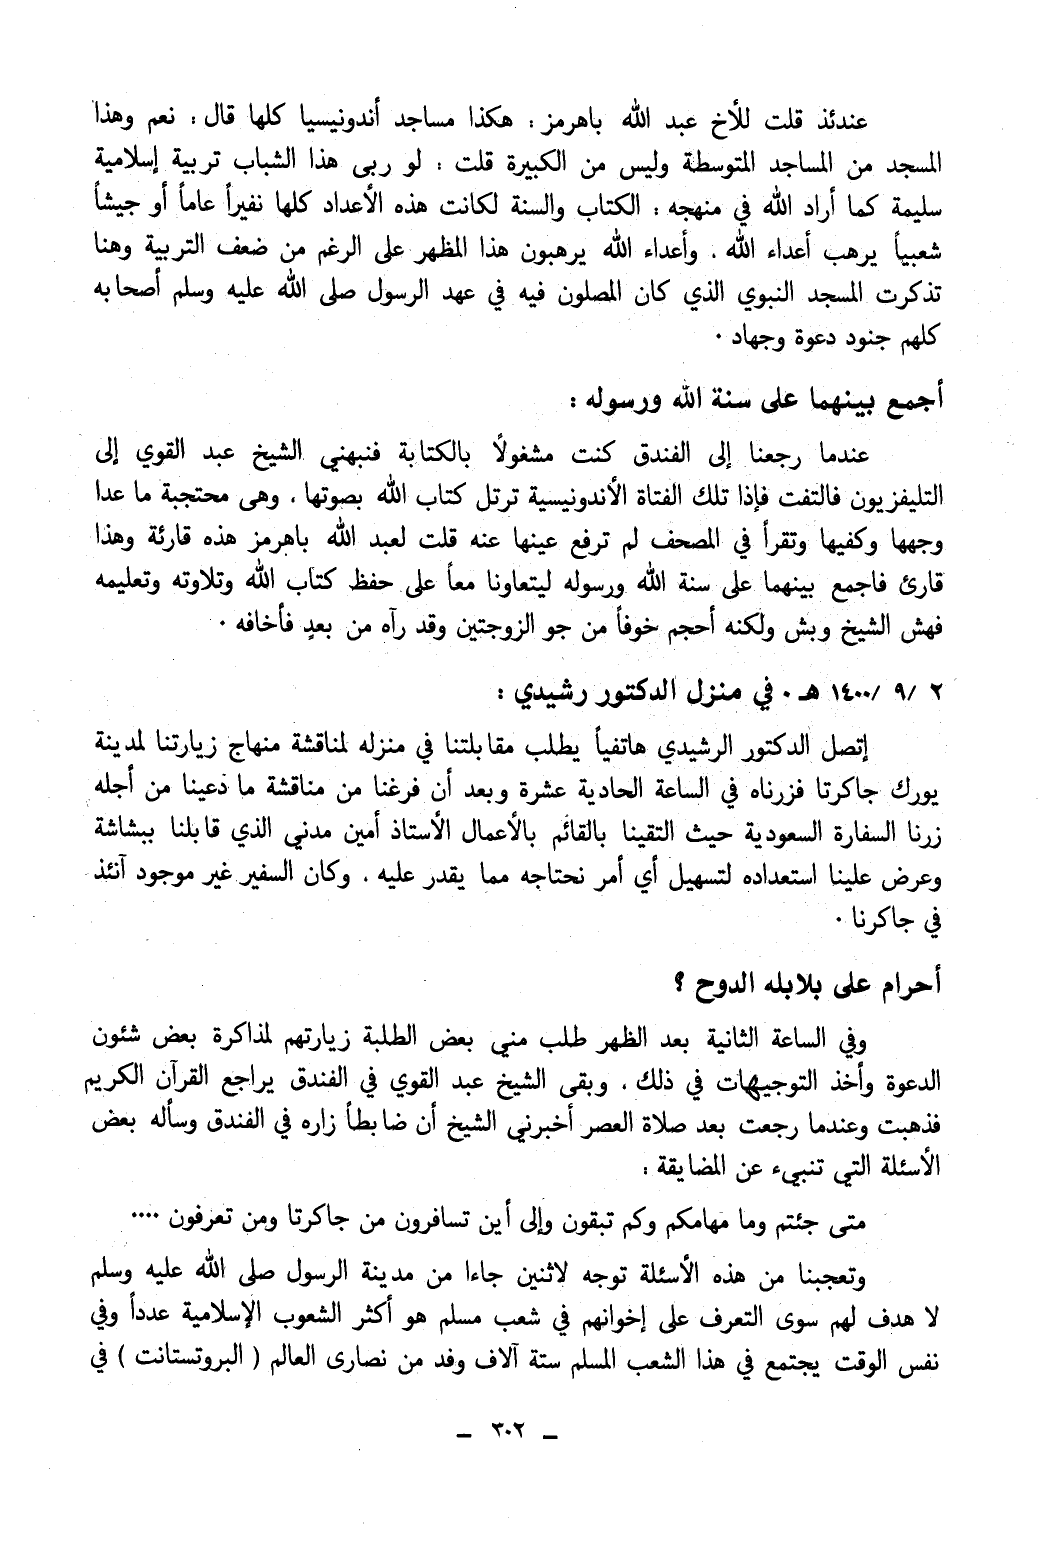 عندئذ قلت للأخ عبد الله باهرمز : هكذا مساجد أندونيسيا كلها قال : نعم وهذا
المسجد من المساجد المتوسطة وليس من الكبيرة قلت : لو ربى هذا الشباب تربية إسلامية
سليمة كما أراد الله في منهجه : الكتاب والسنة لكانت هذه الأعداد كلها نفيراً عاماً أو جيشاً
شعبياً يرهب أعداء الله . وأعداء الله يرهبون هذا المظهر على الرغم من ضعف التربية وهنا
تذكرت المسجد النبوي الذي كان المصلون فيه في عهد الرسول صلى الله عليه وسلم أصحابه
كلهم جنود دعوة وجهاد ٠
أجمع بينهما على سنة الله ورسوله :
عندما رجعنا إلى الفندق كنت مشغولاً بالكتابة فنبهني الشيخ عبد القوي إلى
التليفزيون فالتفت فإذا تلك الفتاة الأندونيسية ترتل كتاب الله بصوتها . وهى محتجبة ما عدا
وجهها وكفيها وتقرأ في المصحف لم ترفع عينها عنه قلت لعبد الله باهرمز هذه قارئة وهذا
قارئ فاجمع بينهما على سنة الله ورسوله ليتعاونا معاً على حفظ كتاب الله وتلاوته وتعليمه
فهش الشيخ وبش ولكنه أحجم خوفاً من جو الزوجتين وقد رآه من بعدٍ فأخافه ٠
٢ /٩ /١٤٠٠ هـ ٠ في منزل الدكتور رشيدي :
إتصل الدكتور الرشيدي هاتفياً يطلب مقابلتنا في منزله لمناقشة منهاج زيارتنا لمدينة
يورك جاكرتا فزرناه في الساعة الحادية عشرة وبعد أن فرغنا من مناقشة ما دعينا من أجله
زرنا السفارة السعودية حيث التقينا بالقائم بالأعمال الأستاذ أمين مدني الذي قابلنا ببشاشة
وعرض علينا استعداده لتسهيل أي أمر نحتاجه مما يقدر عليه . وكان السفير غير موجود آنئذ
في جاكرنا ٠
أحرام على بلابله الدوح ؟
وفي الساعة الثانية بعد الظهر طلب مني بعض الطلبة زيارتهم لمذاكرة بعض شئون
الدعوة وأخذ التوجيهات في ذلك . وبقى الشيخ عبد القوي في الفندق يراجع القرآن الكريم
فذهبت وعندما رجعت بعد صلاة العصر أخبرني الشيخ أن ضابطاً زاره في الفندق وسأله بعض
الأسئلة التي تنبيء عن المضايقة :
متى جئتم وما مهامكم وكم تبقون وإلى أين تسافرون من جاكرتا ومن تعرفون ٠٠٠٠
وتعجبنا من هذه الأسئلة توجه لاثنين جاءا من مدينة الرسول صلى الله عليه وسلم
لا هدف لهم سوى التعرف على إخوانهم في شعب مسلم هو أكثر الشعوب الإسلامية عدداً وفي
نفس الوقت يجتمع في هذا الشعب المسلم ستة آلاف وفد من نصارى العالم ( البروتستانت ) في
ـ ٣٠٢ ـ